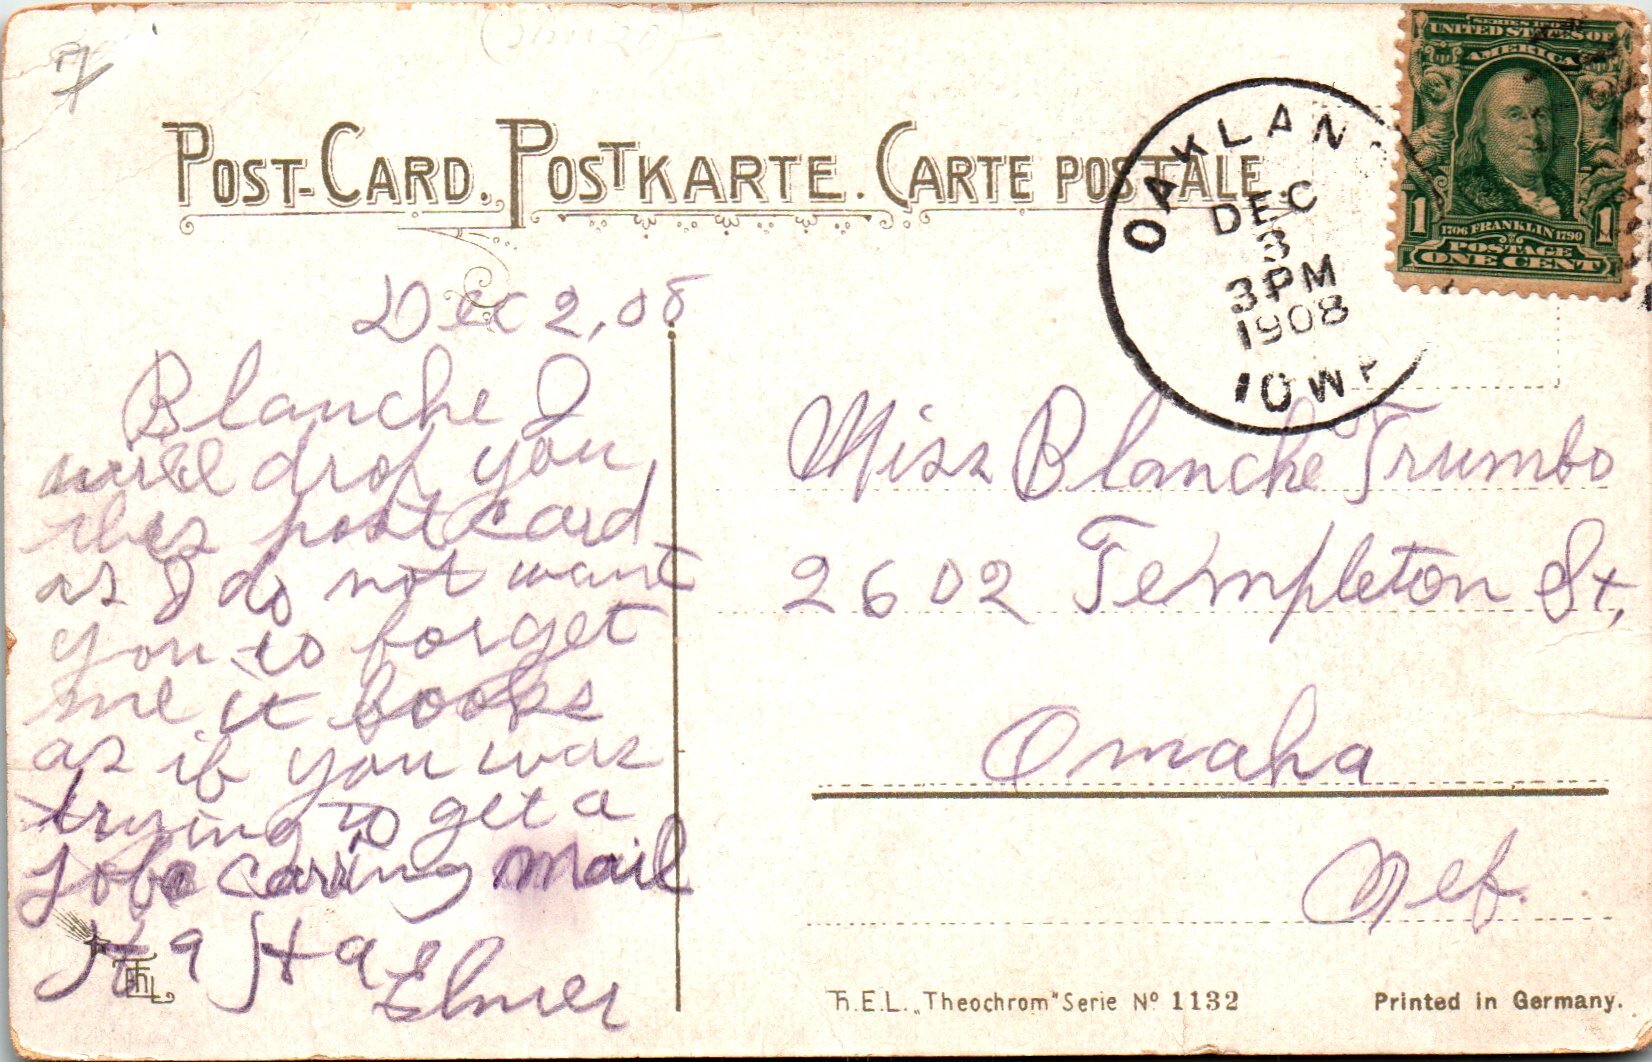 POST-CARD. POSTKARTE. CARTE POSTALE
SERIES 1902
UNITED STATES OF
AMERICA
1706 FRANKLIN 1790
1 POSTAGE 1
ONE CENT
OAKLAN
DEC
3
3 PM
1908
IOWA
Dec 2, 08
Blanche I
will drop you
this post card
as I do not want
you to forget
me it looks
as if you was
trying to get a
jobe carring mail
Ha Ha
Elmer
Miss Blanche Trumbo
2602 Templeton St,
Omaha
Neb.
Th.E.L. „Theochrom" Serie Nº 1132
Printed in Germany.